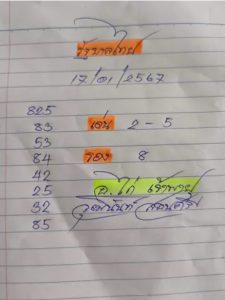 รัฐบาลไทย
17/01/2567
825
83 เด่น 2-5
53
84 รอง 8
42
25 อ.ไก่ เจ้าพายุ
32
85